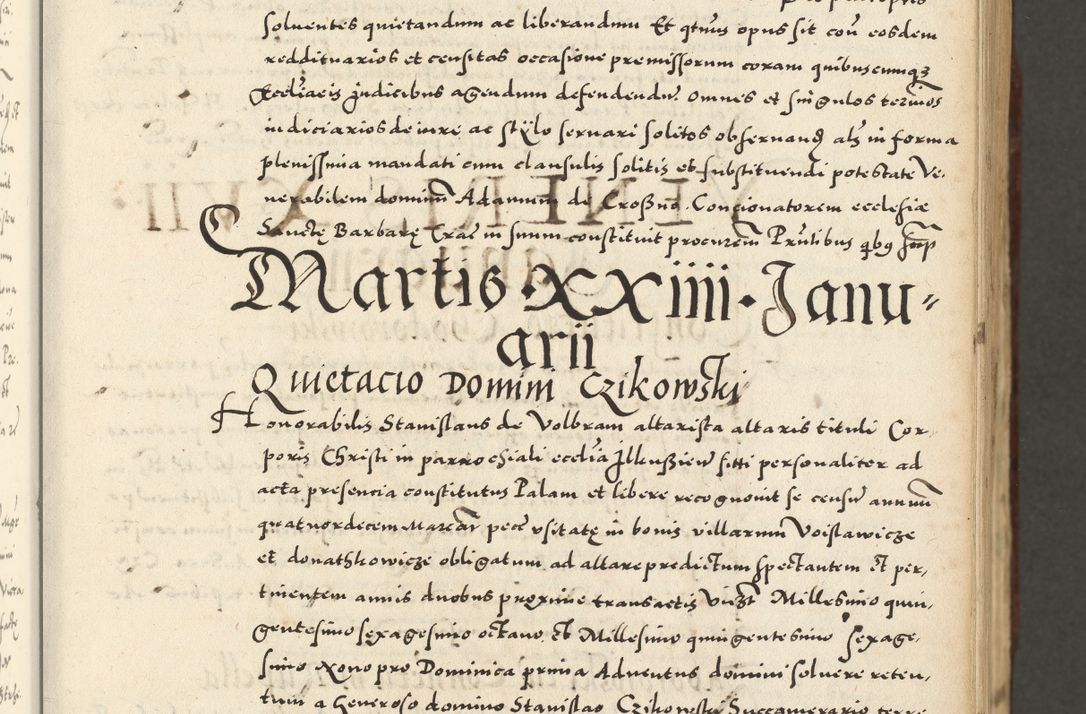 soluentes quietandum ac liberandum Et qtnus opus sit cou eosdem
reddituarios et censitas occasione premissorum coram quibuscumqz
Eccliaeis Judicibus agendum defendendu. omnes et singulos termos
iudiciarios de iure ac stylo seruari solitos obseruand als in forma
plenissima mandati cum clausulis solitis et substituendi potestate Ve-
nerabilem dominum Adamum de Croßno Concionatorem ecclesiæ
Sanctę Barbarę Crac in suum constituit procurem Prntibus qbg
Martis · XXIIII · Janu-
arii
Quietacio Domini Czikowski
Honorabilis Stanislaus de Volbram altarista altaris tituli Cor-
poris Christi in parrochiali ecclia Jlkußien sitti personaliter ad
acta presencia constitutus Palam et libere recognouit se censu annuu
quatuordecem Marcar pece vsitatę in bonis villarum Voislawicze
et donathkowicze obligatum ad altare predictum spectantem et per-
tinentem annis duobus proxime transactis Vizt Millesimo quin-
gentesimo sexagesimo octauo, et Millesimo quingentesimo sexage-
simo Nono pro Dominica prima Aduentus domini soluere reten-
tum a Generoso domino Stanislao Czikowski Succamerario terre